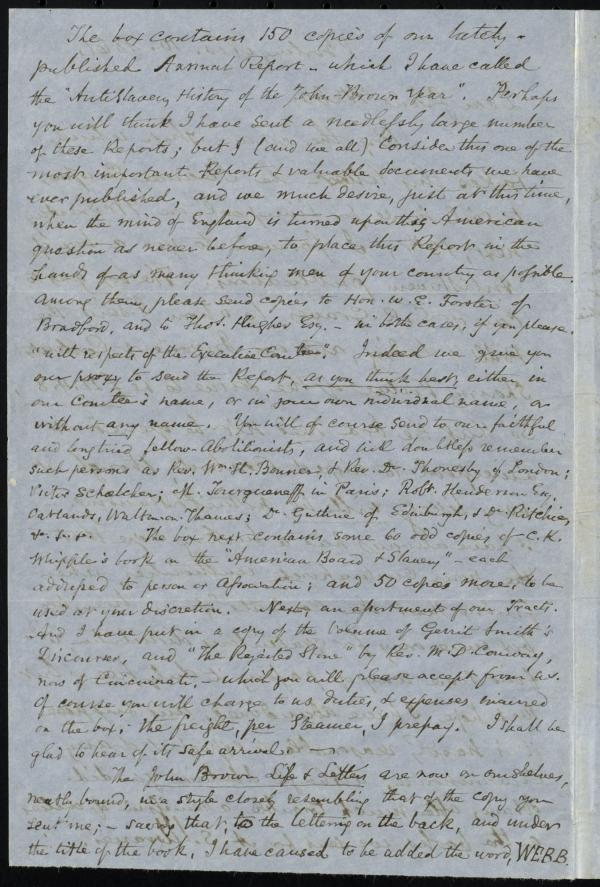 The box contains 150 copies of our lately-
published Annual Report - which I have called
the "Anti Slavery History of the John-Brown Year". Perhaps
you will think I have sent a needlessly large number
of these Reports; but I (and we all) Consider this one of the
most important Reports & valuable documents we have
ever published, and we much desire, just at this time,
when the mind of England is turned upon this American
question as never before, to place this Report in the
hands of as many thinking men of your country as possible.
Among them, please send copies to Hon. W. E. Forster of
Bradford, and to Thos. Hughes Esq. - in both cases, if you please,
"with respects of the Executive Comtee". Indeed we give you
our proxy to send the Report, as you think best, either in
our Comtee's name, or in your own individual name, or
without any name. You will of course send to our faithful
and long tried fellow-Abolitionists, and will doubtless remember
such persons as Rev. Wm. H. Bonner, & Rev. Dr. Thoresby of London;
Victor Schœlcher; M. Tourgueneff in Paris; Robt. Henderson Esq.
Oatlands, Walton-on-Thames; Dr. Guthrie of Edinburgh, & Dr. Ritchie,
&. &. &. The box next contains some 60 odd copies of C. K.
Whipple's book on the "American Board & Slavery" - each
addressed to person or Association; and 50 copies more, to be
used at your discretion. Next, an assortment of our Tracts.
And I have put in a copy of the volume of Gerrit Smith's
Discourses, and "The Rejected Stone" by Rev. M. D. Conway,
now of Cincinnati, - which you will please accept from us.
Of course you will charge to us, duties, & expenses incurred
on the box; the freight, per Steamer, I prepay. I shall be
glad to hear of its safe arrival. —
The John Brown Life & Letters are now on our shelves,
neatly bound, in a style closely resembling that of the copy you
sent me; - saving that, to the lettering on the back, and under
the title of the book, I have caused to be added the word, WEBB.